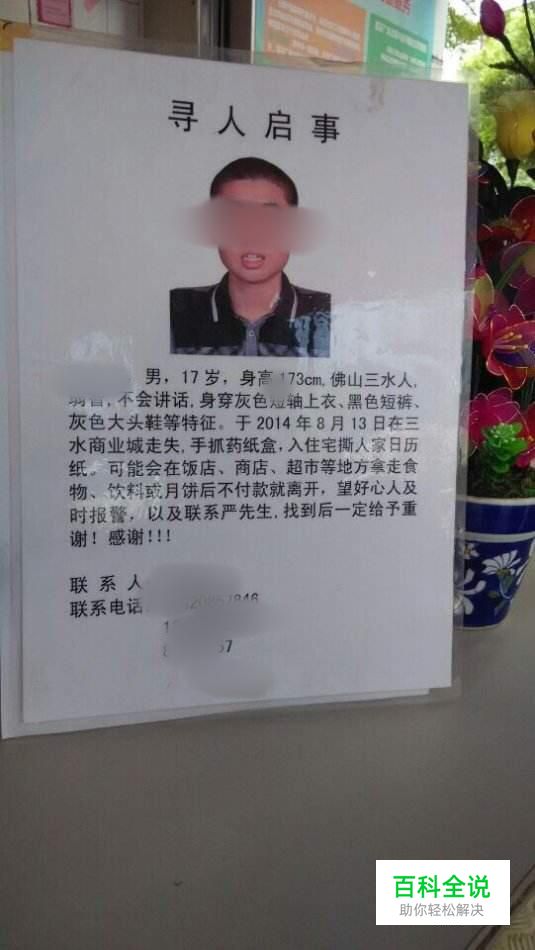 寻人启事
男，17岁，身高173cm,佛山三水人,
弱智,不会讲话,身穿灰色短轴上衣、黑色短裤、
灰色大头鞋等特征。于2014年8月13日在三
水商业城走失,手抓药纸盒，入住宅撕人家日历
纸。可能会在饭店、商店、超市等地方拿走食
物、饮料或月饼后不付款就离开，望好心人及
时报警，以及联系严先生,找到后一定给予重
谢！感谢!!!
联系人
联系电话:
百科全说
助你轻松解决